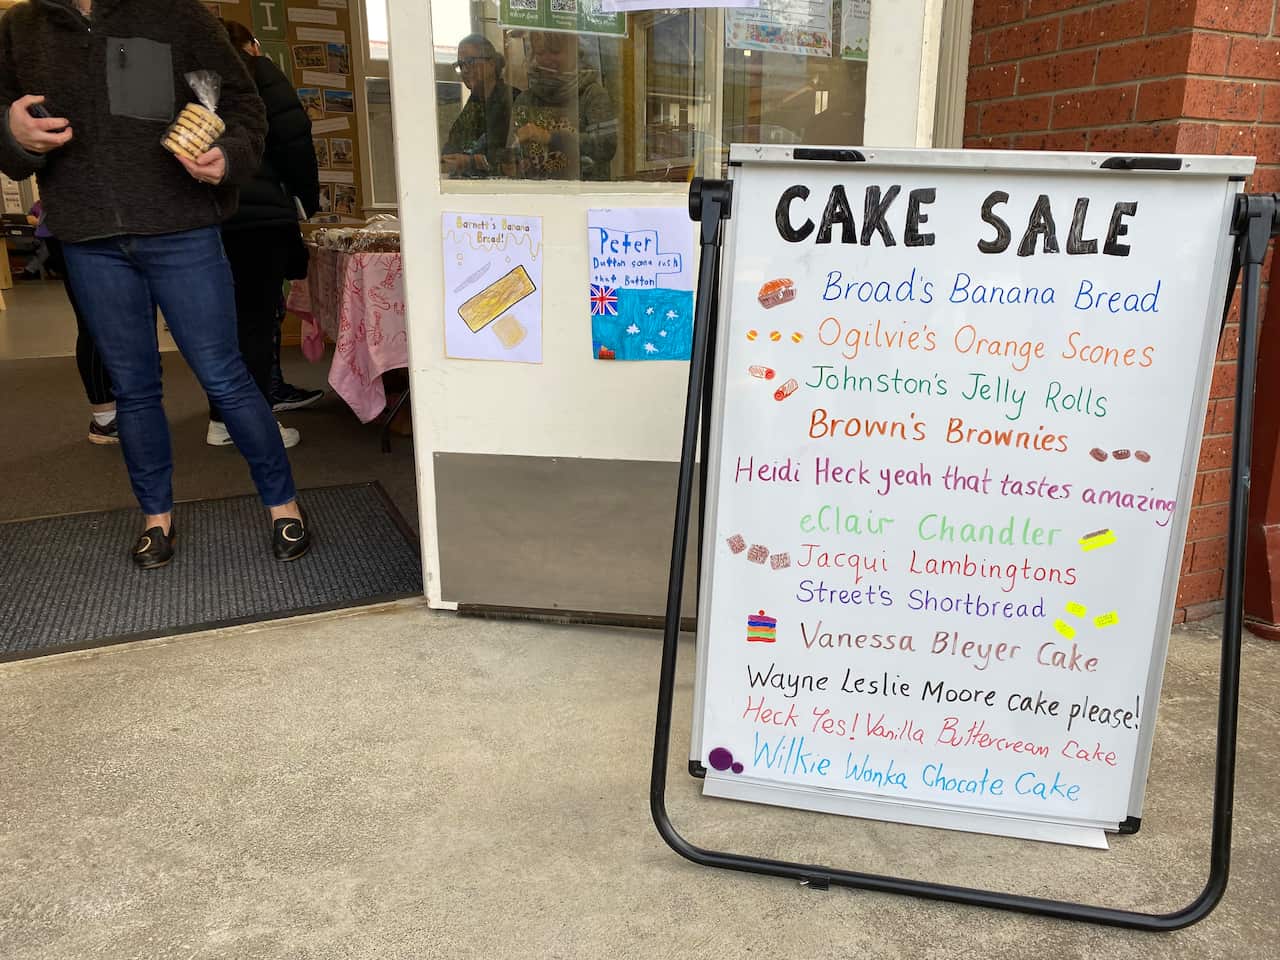 Barnett's Banana
Bread!
Peter
Dutton gona rush
that Button
CAKE SALE
Broad's Banana Bread
Ogilvie's Orange Scones
Johnston's Jelly Rolls
Brown's Brownies
Heidi Heck yeah that tastes amazing
eClair Chandler
Jacqui Lambingtons
Street's Shortbread
Vanessa Bleyer Cake
Wayne Leslie Moore cake please!
Heck Yes! Vanilla Buttercream Cake
Wilkie Wonka Chocate Cake